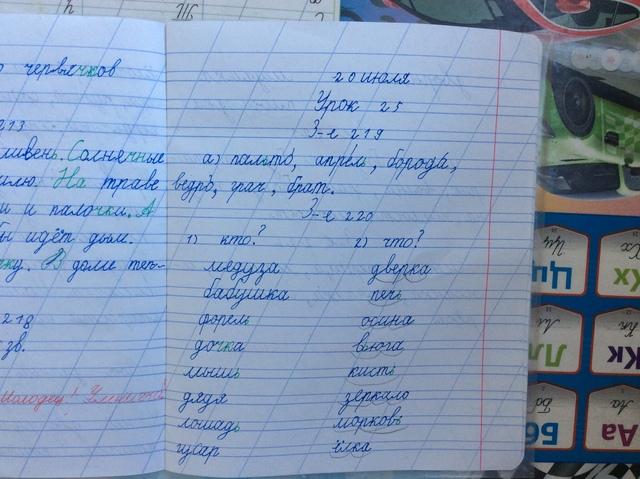 червячков
213
ливень. Солнечные
На траве
и и палочки. А
бы идёт дым.
В доме теп-
218
зв.
Молодец! Умничка!
20 июля
Урок 25
З-е 219
а) пальто́, апре́ль, борода́,
ведро́, грач, брат.
З-е 220
1) кто? 2) что?
медуза дверка
бабушка печь
форель осина
дочка вьюга
мышь кисть
дядя зеркало
лошадь морковь
гусар ёлка
Хх
Цц
Кк
Лл
Аа
Бб